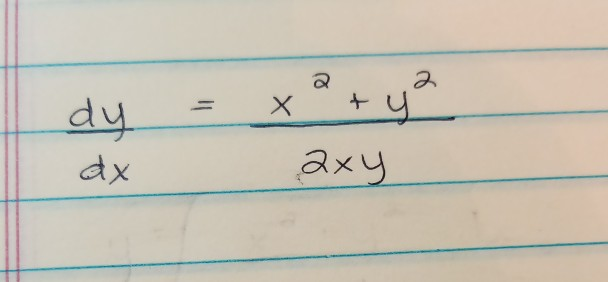 dy/dx = (x² + y²)/(2xy)